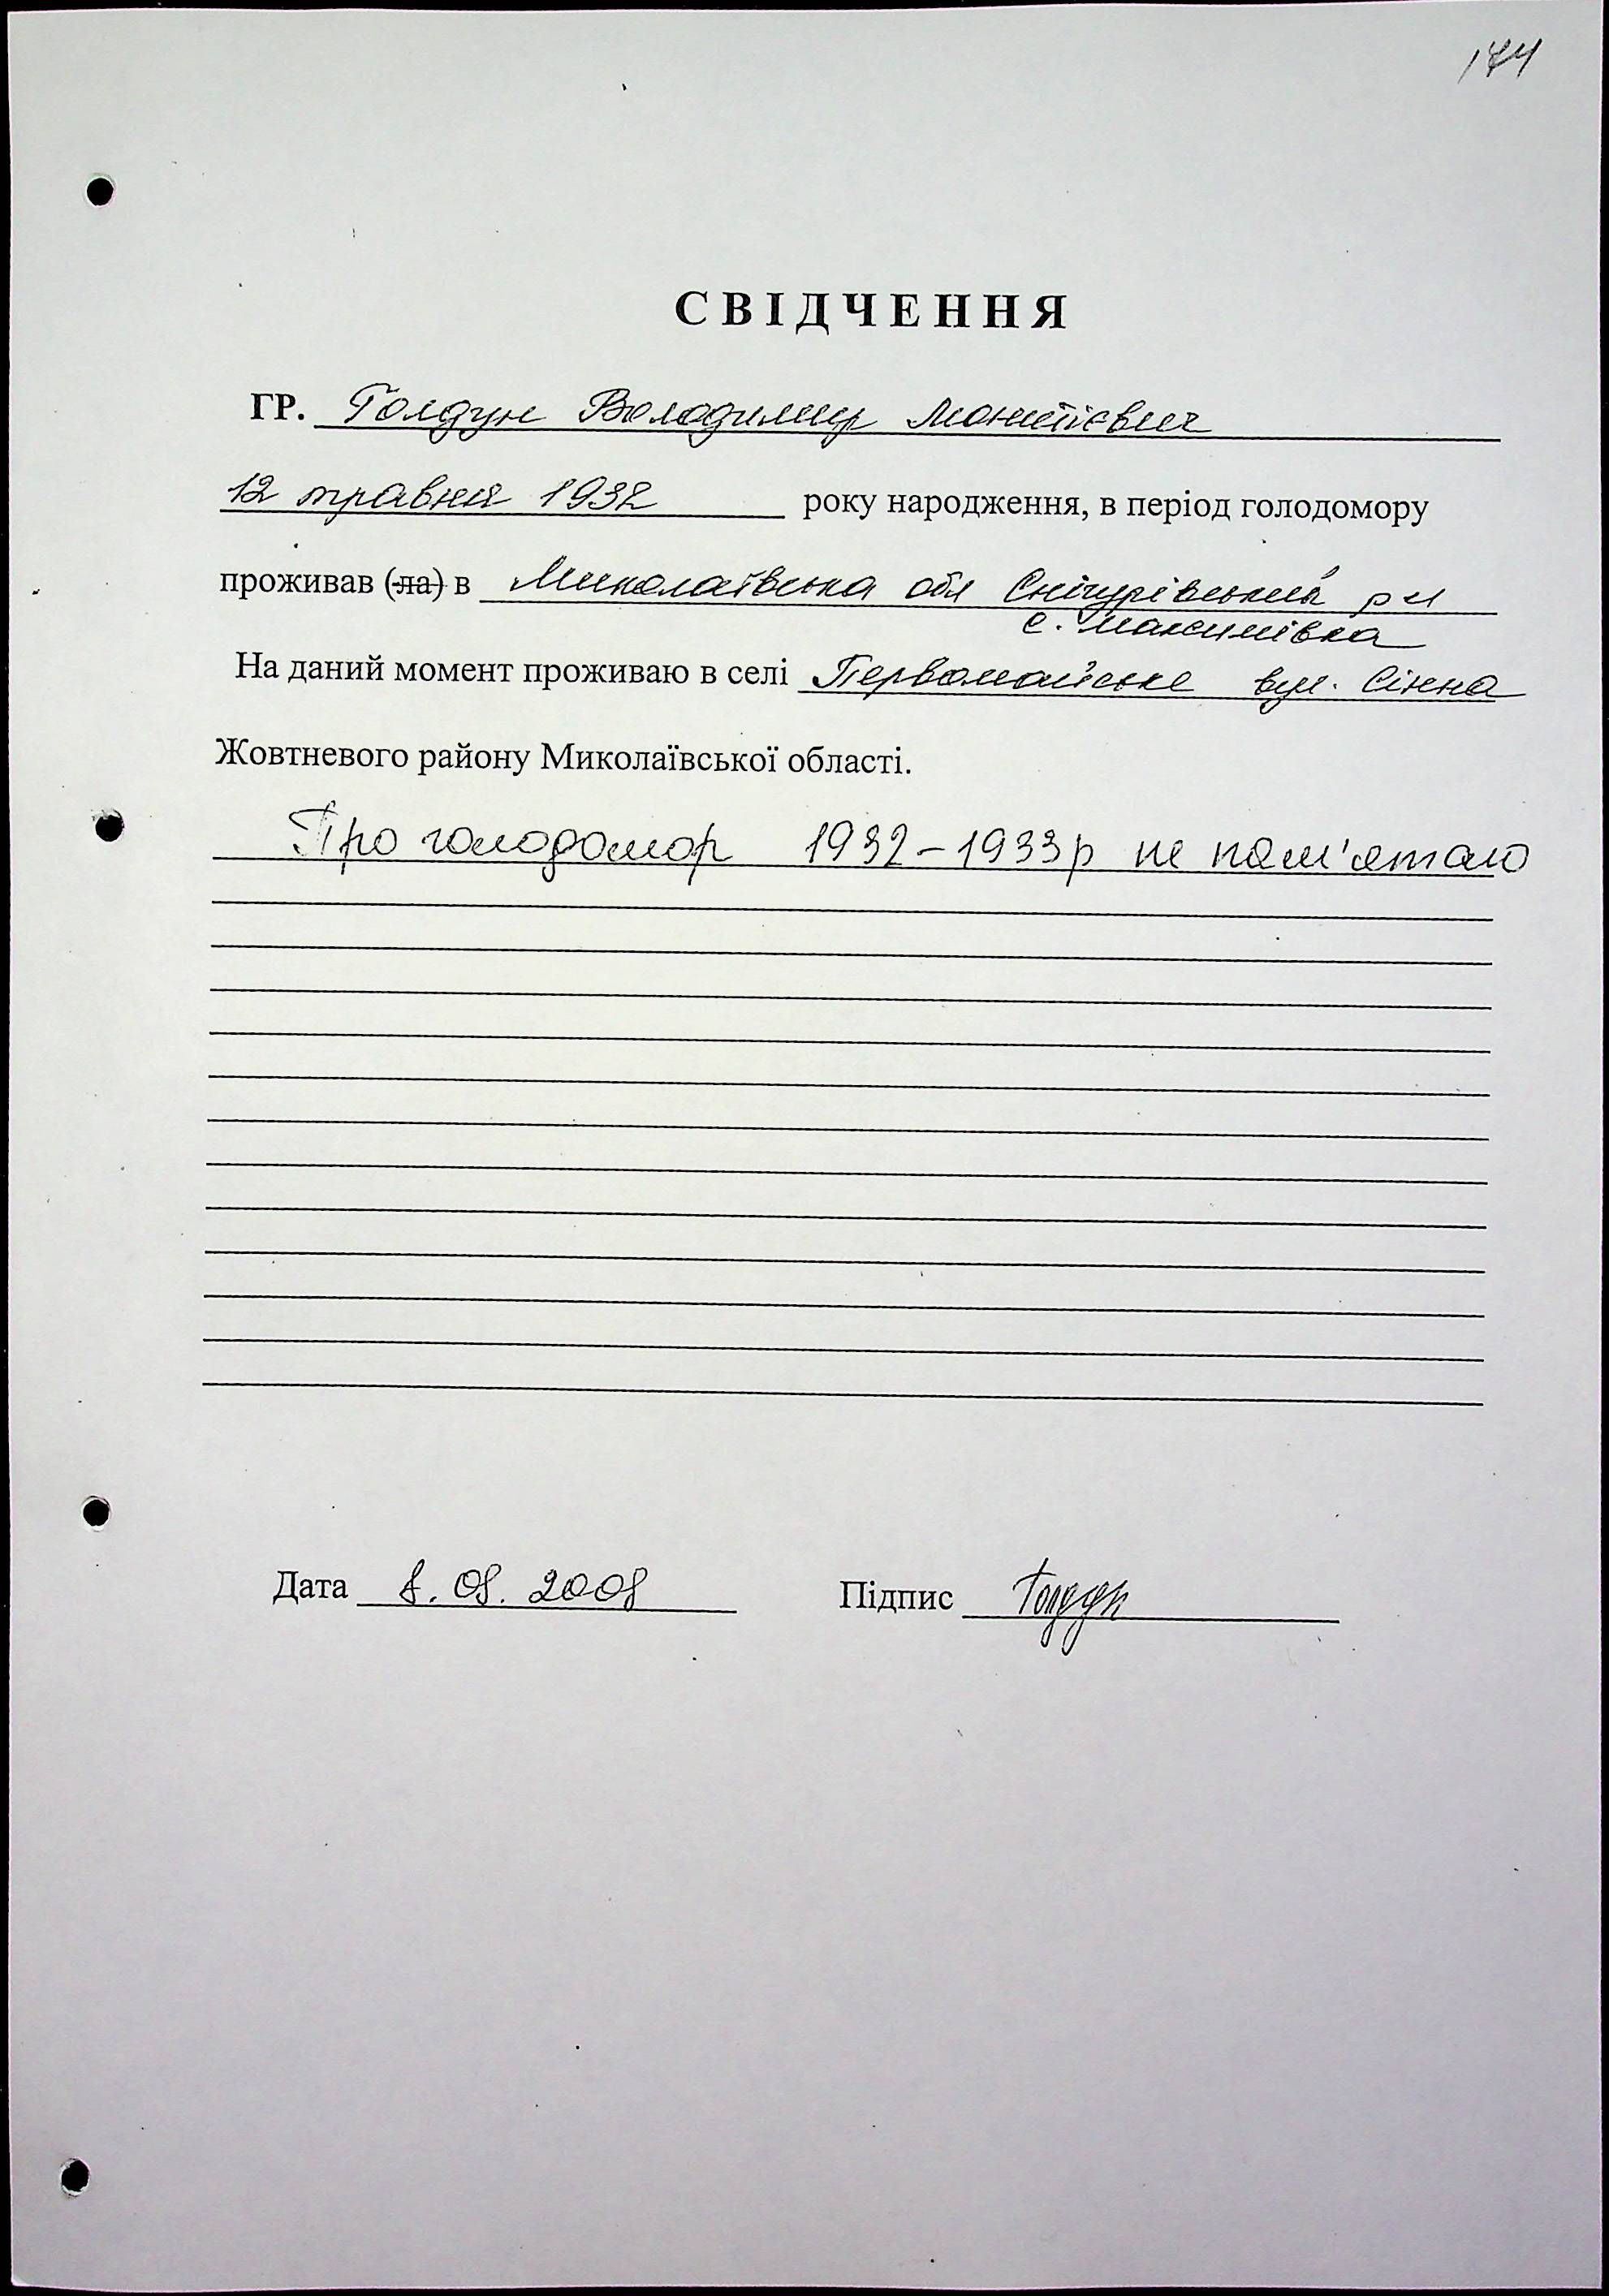 174
СВІДЧЕННЯ
ГР. Голдун Володимир
12 травня 1932 року народження, в період голодомору
проживав (ла) в Миколаївська обл Снігурівський рн
с. Максимівка
На даний момент проживаю в селі Первомайське вул. Сінна
Жовтневого району Миколаївської області.
Про голодомор 1932-1933р не пам'ятаю
Дата 8.08.2008 Підпис Голдун